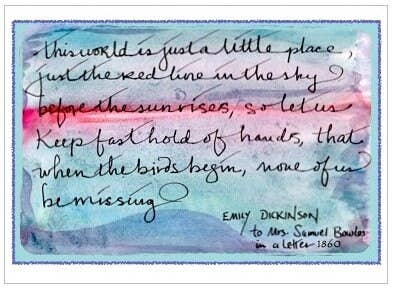 this world is just a little place,
just the red line in the sky
before the sun rises, so let us
keep fast hold of hands, that
when the birds begin, none of us
be missing
EMILY DICKINSON
to Mrs. Samuel Bowles
in a letter 1860